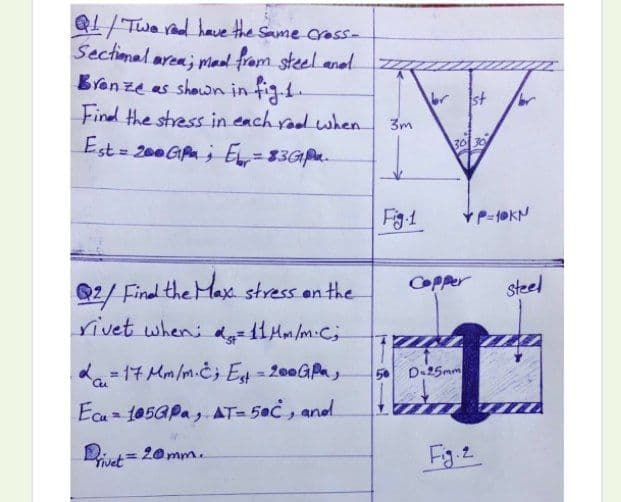 Q1/ Two rod have the same cross-
Sectional area; mad from steel and
Bronze as shown in fig.1.
Find the stress in each rod when
Est = 200GPa ; Ebr = 83GPa.
br st br
3m
30° 30°
Fig.1
P=10KN
Q2/ Find the Max stress on the
rivet when; αst = 11 Mm/m.C;
αCu = 17 Mm/m.C̊; Est = 200GPa,
Ecu = 105GPa, ΔT= 50C̊, and
Drivet = 20mm.
Copper
steel
50
D=25mm
Fig.2